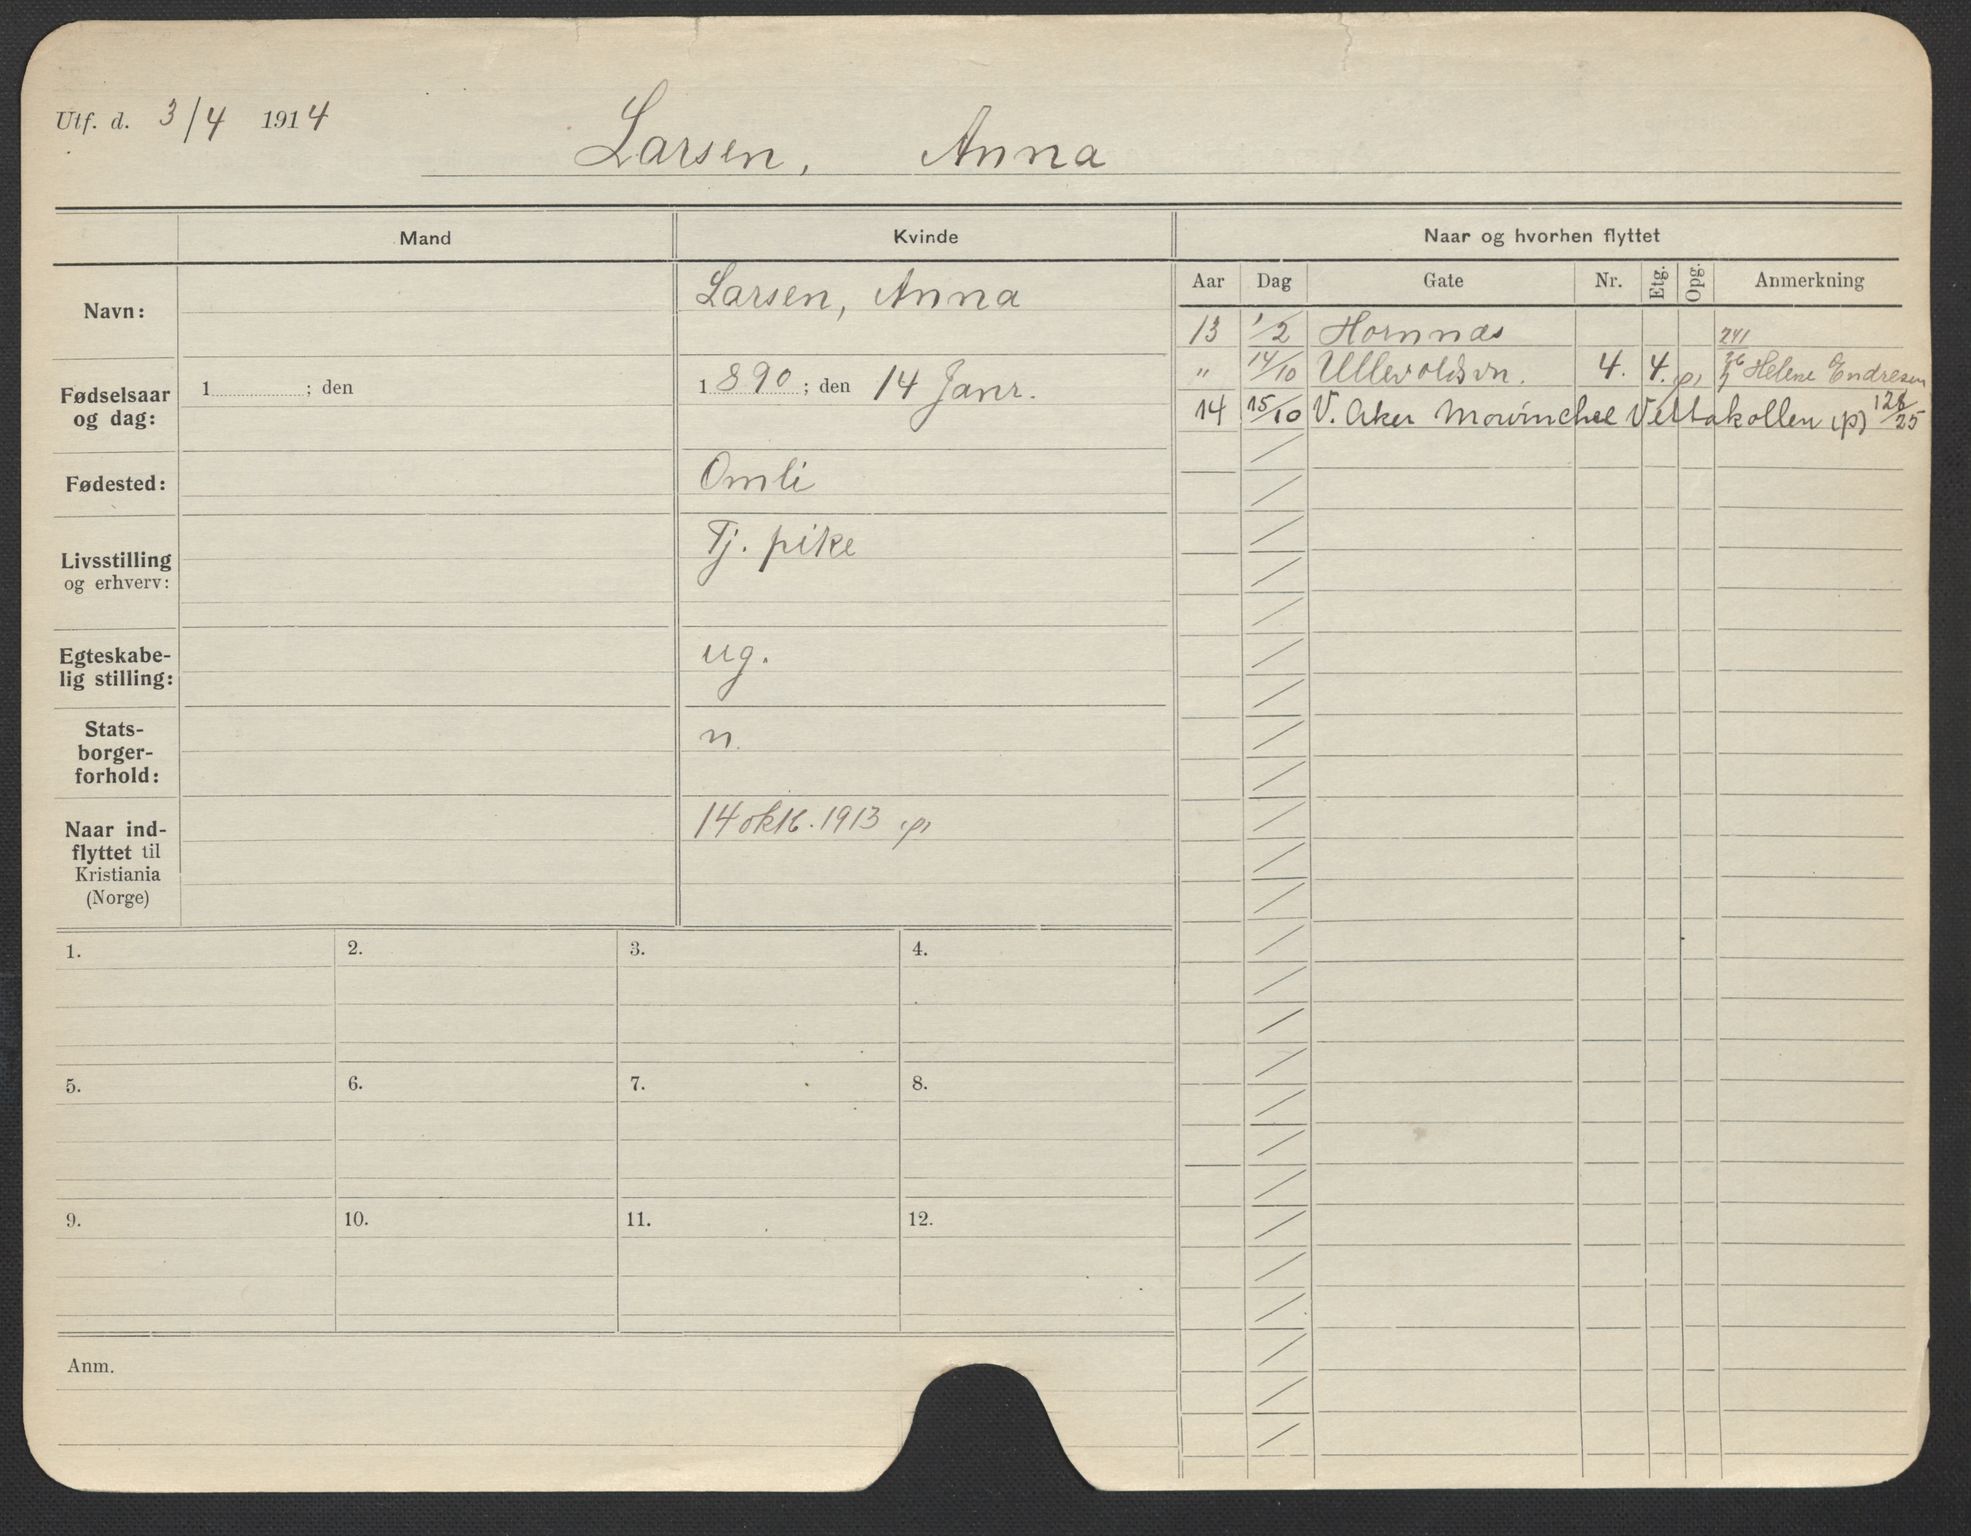 Utf. d. 3/4 1914
Larsen, Anna
Mand
Kvinde
Naar og hvorhen flyttet
Aar Dag Gate Nr. Etg. Opg. Anmerkning
Navn:
Larsen, Anna
13 1/2 Hornnæs 241
" 14/10 Ullevoldsvn. 4. 4. (p) Helene Endresen
14 15/10 V. Aker Mowinchel Vettakollen (p) 128/25
Fødselsaar
og dag:
1 ; den
1890; den 14 Janr.
Fødested:
Omli
Livsstilling
og erhverv:
Tj. pike
Egteskabe-
lig stilling:
ug.
Stats-
borger-
forhold:
n.
Naar ind-
flyttet til
Kristiania
(Norge)
14 okt. 1913 (p)
1. 2. 3. 4.
5. 6. 7. 8.
9. 10. 11. 12.
Anm.